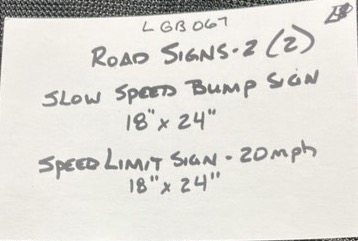 LGB067
ROAD SIGNS - 2 (2)
SLOW SPEED BUMP SIGN
18" x 24"
SPEED LIMIT SIGN - 20mph
18" x 24"